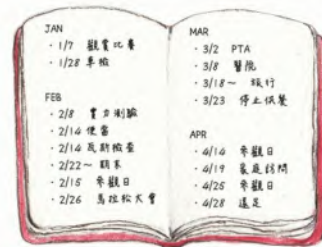 JAN
· 1/7 觀賞比賽
· 1/28 車檢
FEB
· 2/8 實力測驗
· 2/14 便當
· 2/14 瓦斯檢查
· 2/22～ 期末
· 2/15 參觀日
· 2/26 馬拉松大會
MAR
· 3/2 PTA
· 3/8 醫院
· 3/18～ 旅行
· 3/23 停止供餐
APR
· 4/14 參觀日
· 4/19 家庭訪問
· 4/25 參觀日
· 4/28 遠足